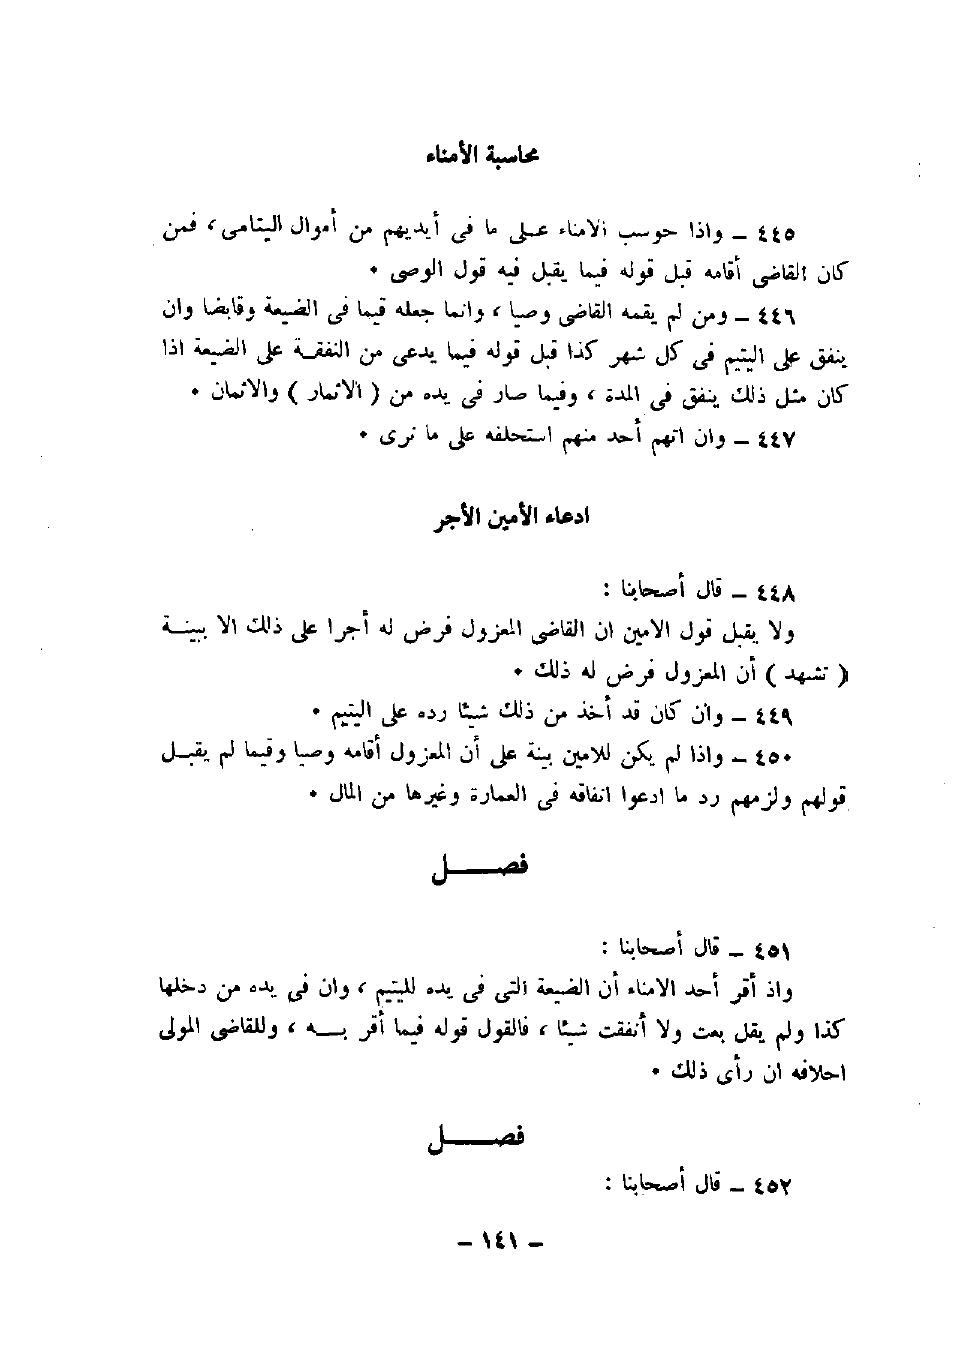 محاسبة الأمناء
٤٤٥ ــ واذا حوسب الامناء عـلى ما فى أيديهم من أموال اليتامى ، فمن
كان القاضى أقامه قبل قوله فيما يقبل فيه قول الوصى ٠
٤٤٦ ــ ومن لم يقمه القاضى وصيا ، وانما جعله قيما فى الضيعة وقابضا وان
ينفق على اليتيم فى كل شهر كذا قبل قوله فيما يدعى من النفقـة على الضيعة اذا
كان مثل ذلك ينفق فى المدة ، وفيما صار فى يده من ( الاثمار ) والاثمان ٠
٤٤٧ ــ وان اتهم أحد منهم استحلفه على ما نرى ٠
ادعاء الأمين الأجر
٤٤٨ ــ قال أصحابنا :
ولا يقبل قول الامين ان القاضى المعزول فرض له أجرا على ذلك الا ببينــة
( تشهد ) أن المعزول فرض له ذلك ٠
٤٤٩ ــ وان كان قد أخذ من ذلك شيئا رده على اليتيم ٠
٤٥٠ ــ واذا لم يكن للامين بينة على أن المعزول أقامه وصيا وقيما لم يقبـل
قولهم ولزمهم رد ما ادعوا انفاقه فى العمارة وغيرها من المال ٠
فصـــــل
٤٥١ ــ قال أصحابنا :
واذ أقر أحد الامناء أن الضيعة التى فى يده لليتيم ، وان فى يده من دخلها
كذا ولم يقل بعت ولا أنفقت شيئا ، فالقول قوله فيما أقر بـــه ، وللقاضى المولى
احلافه ان رأى ذلك ٠
فصـــــل
٤٥٢ ــ قال أصحابنا :
ــ ١٤١ ــ